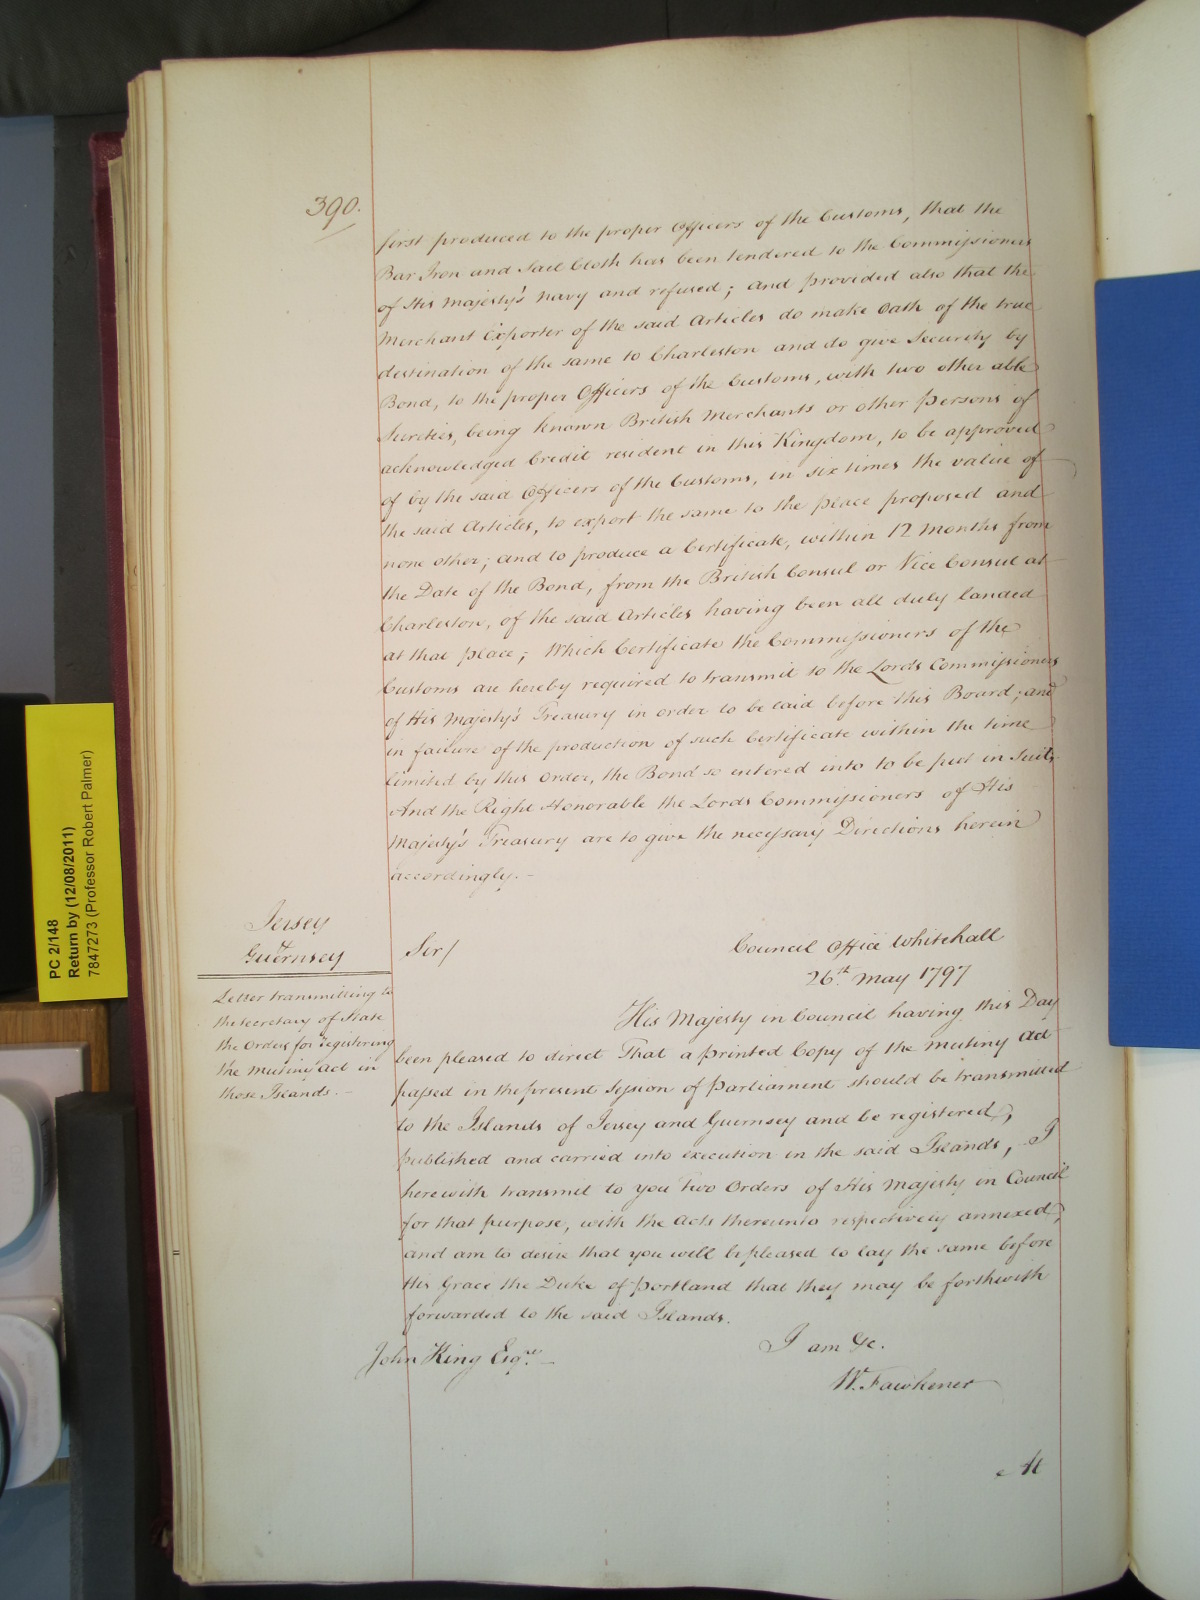 390.
first produced to the proper Officers of the Customs, that the
Bar Iron and Sail Cloth has been tendered to the Commissioners
of His Majesty's Navy and refused; and provided also that the
Merchant Exporter of the said Articles do make Oath of the true
destination of the same to Charleston and do give Security by
Bond, to the proper Officers of the Customs, with two other able
Sureties, being known British Merchants or other Persons of
acknowledged Credit resident in this Kingdom, to be approved
of by the said Officers of the Customs, in six times the value of
the said Articles, to export the same to the place proposed and
none other; and to produce a Certificate, within 12 Months from
the Date of the Bond, from the British Consul or Vice Consul at
Charleston, of the said Articles having been all duly landed
at that place; Which Certificate the Commissioners of the
Customs are hereby required to transmit to the Lords Commissioners
of His Majesty's Treasury in order to be laid before this Board; and
in failure of the production of such Certificate within the time
limited by this Order, the Bond so entered into to be put in Suit.
And the Right Honorable the Lords Commissioners of His
Majesty's Treasury are to give the necessary Directions herein
accordingly.-
Jersey
&
Guernsey
Letter transmitting to
the Secretary of State
the Orders for registering
the Mutiny Act in
those Islands.-
Sir/
Council Office Whitehall
26th. May 1797
His Majesty in Council having this Day
been pleased to direct That a printed Copy of the Mutiny Act
passed in the present Session of Parliament should be transmitted
to the Islands of Jersey and Guernsey and be registered,
published and carried into execution in the said Islands, I
herewith transmit to you two Orders of His Majesty in Council
for that purpose, with the Acts thereunto respectively annexed,
and am to desire that you will be pleased to lay the same before
His Grace the Duke of Portland that they may be forthwith
forwarded to the said Islands.
I am &c.
John King Esqre.-
W. Fawkener
At
PC 2/148
Return by (12/08/2011)
7847273 (Professor Robert Palmer)